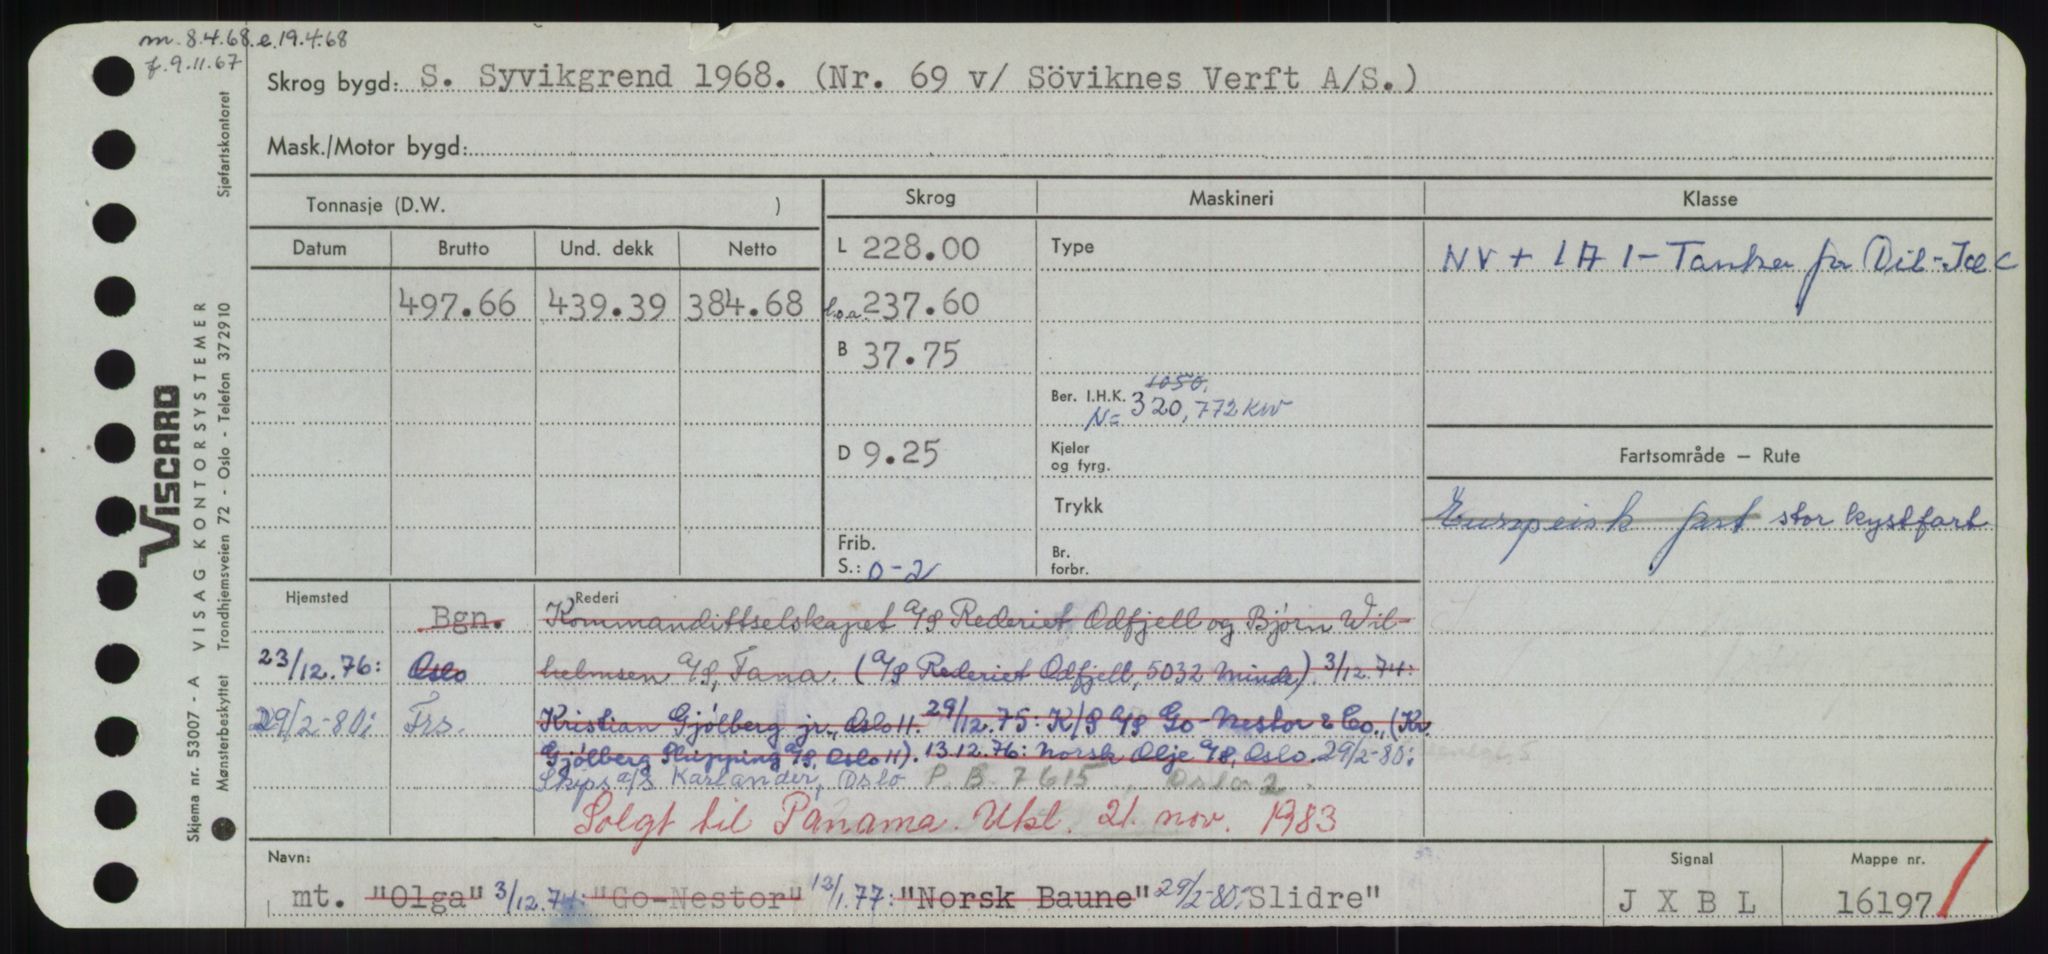 m. 8.4.68. e. 19.4.68
f. 9.11.67
Skrog bygd: S. Syvikgrend 1968. (Nr. 69 v/ Söviknes Verft A/S.)
Mask./Motor bygd:
Tonnasje (D.W. ) Skrog Maskineri Klasse
Datum Brutto Und. dekk Netto L 228.00 Type NV + 1A1 - Tanker for
497.66 439.39 384.68 l.o.a. 237.60
B 37.75
1050.
Ber. I.H.K. 320, 772 KW
N=
D 9.25 Kjeler og fyrg. Fartsområde — Rute
Trykk Europeisk fart stor kystfart
Frib. Br.
S.: 0-2 forbr.
Hjemsted Rederi
Bgn. Kommandittselskapet A/S Rederiet Odfjell og Bjørn Wil-
23/12.76: Oslo helmsen A/S, Fana. (A/S Rederiet Odfjell, 5032 Minde). 3/12.74:
29/2-80: Frs. Kristian Gjølberg jr., Oslo 11. 29/12.75: K/S A/S Go-Nestor & Co., (Kr.
Gjølberg Shipping A/S, Oslo 11). 13.12.76: Norsk Olje A/S, Oslo. 29/2-80:
Skips A/S Karlander, Oslo P.B. 7615, Oslo 2.
Solgt til Panama. Utsl. 21. nov. 1983
Navn: Signal Mappe nr.
mt. "Olga" 3/12.74: "Go-Nestor" 13/1.77: "Norsk Baune" 29/2-80: Slidre" J X B L 16197
Skjema nr. 53007 - A VISAG KONTORSYSTEMER Sjøfartskontoret
Mønsterbeskyttet Trondhjemsveien 72 - Oslo - Telefon 372910
VISCARD